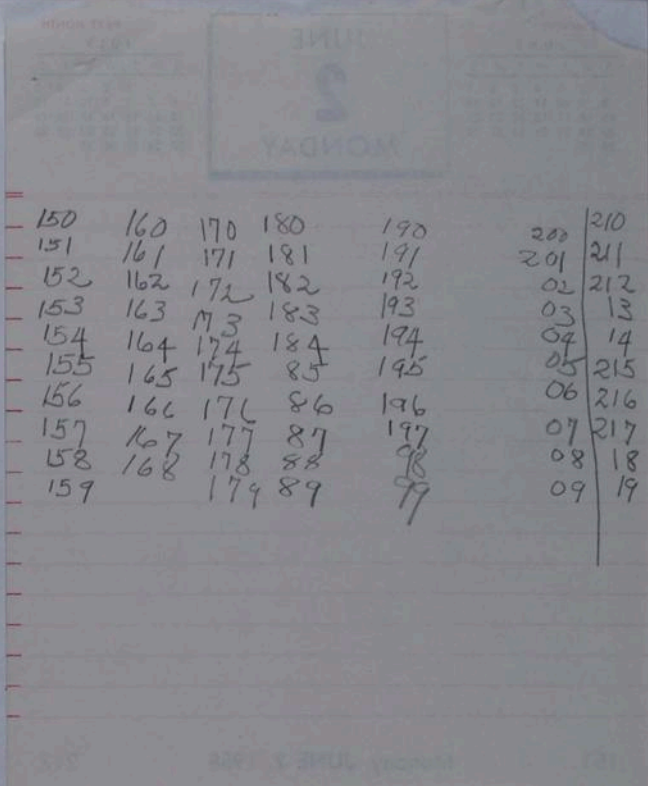 150 160 170 180 190 200 210
151 161 171 181 191 201 211
152 162 172 182 192 02 212
153 163 173 183 193 03 13
154 164 174 184 194 04 14
155 165 175 85 195 05 215
156 166 176 86 196 06 216
157 167 177 87 197 07 217
158 168 178 88 98 08 18
159 179 89 99 09 19